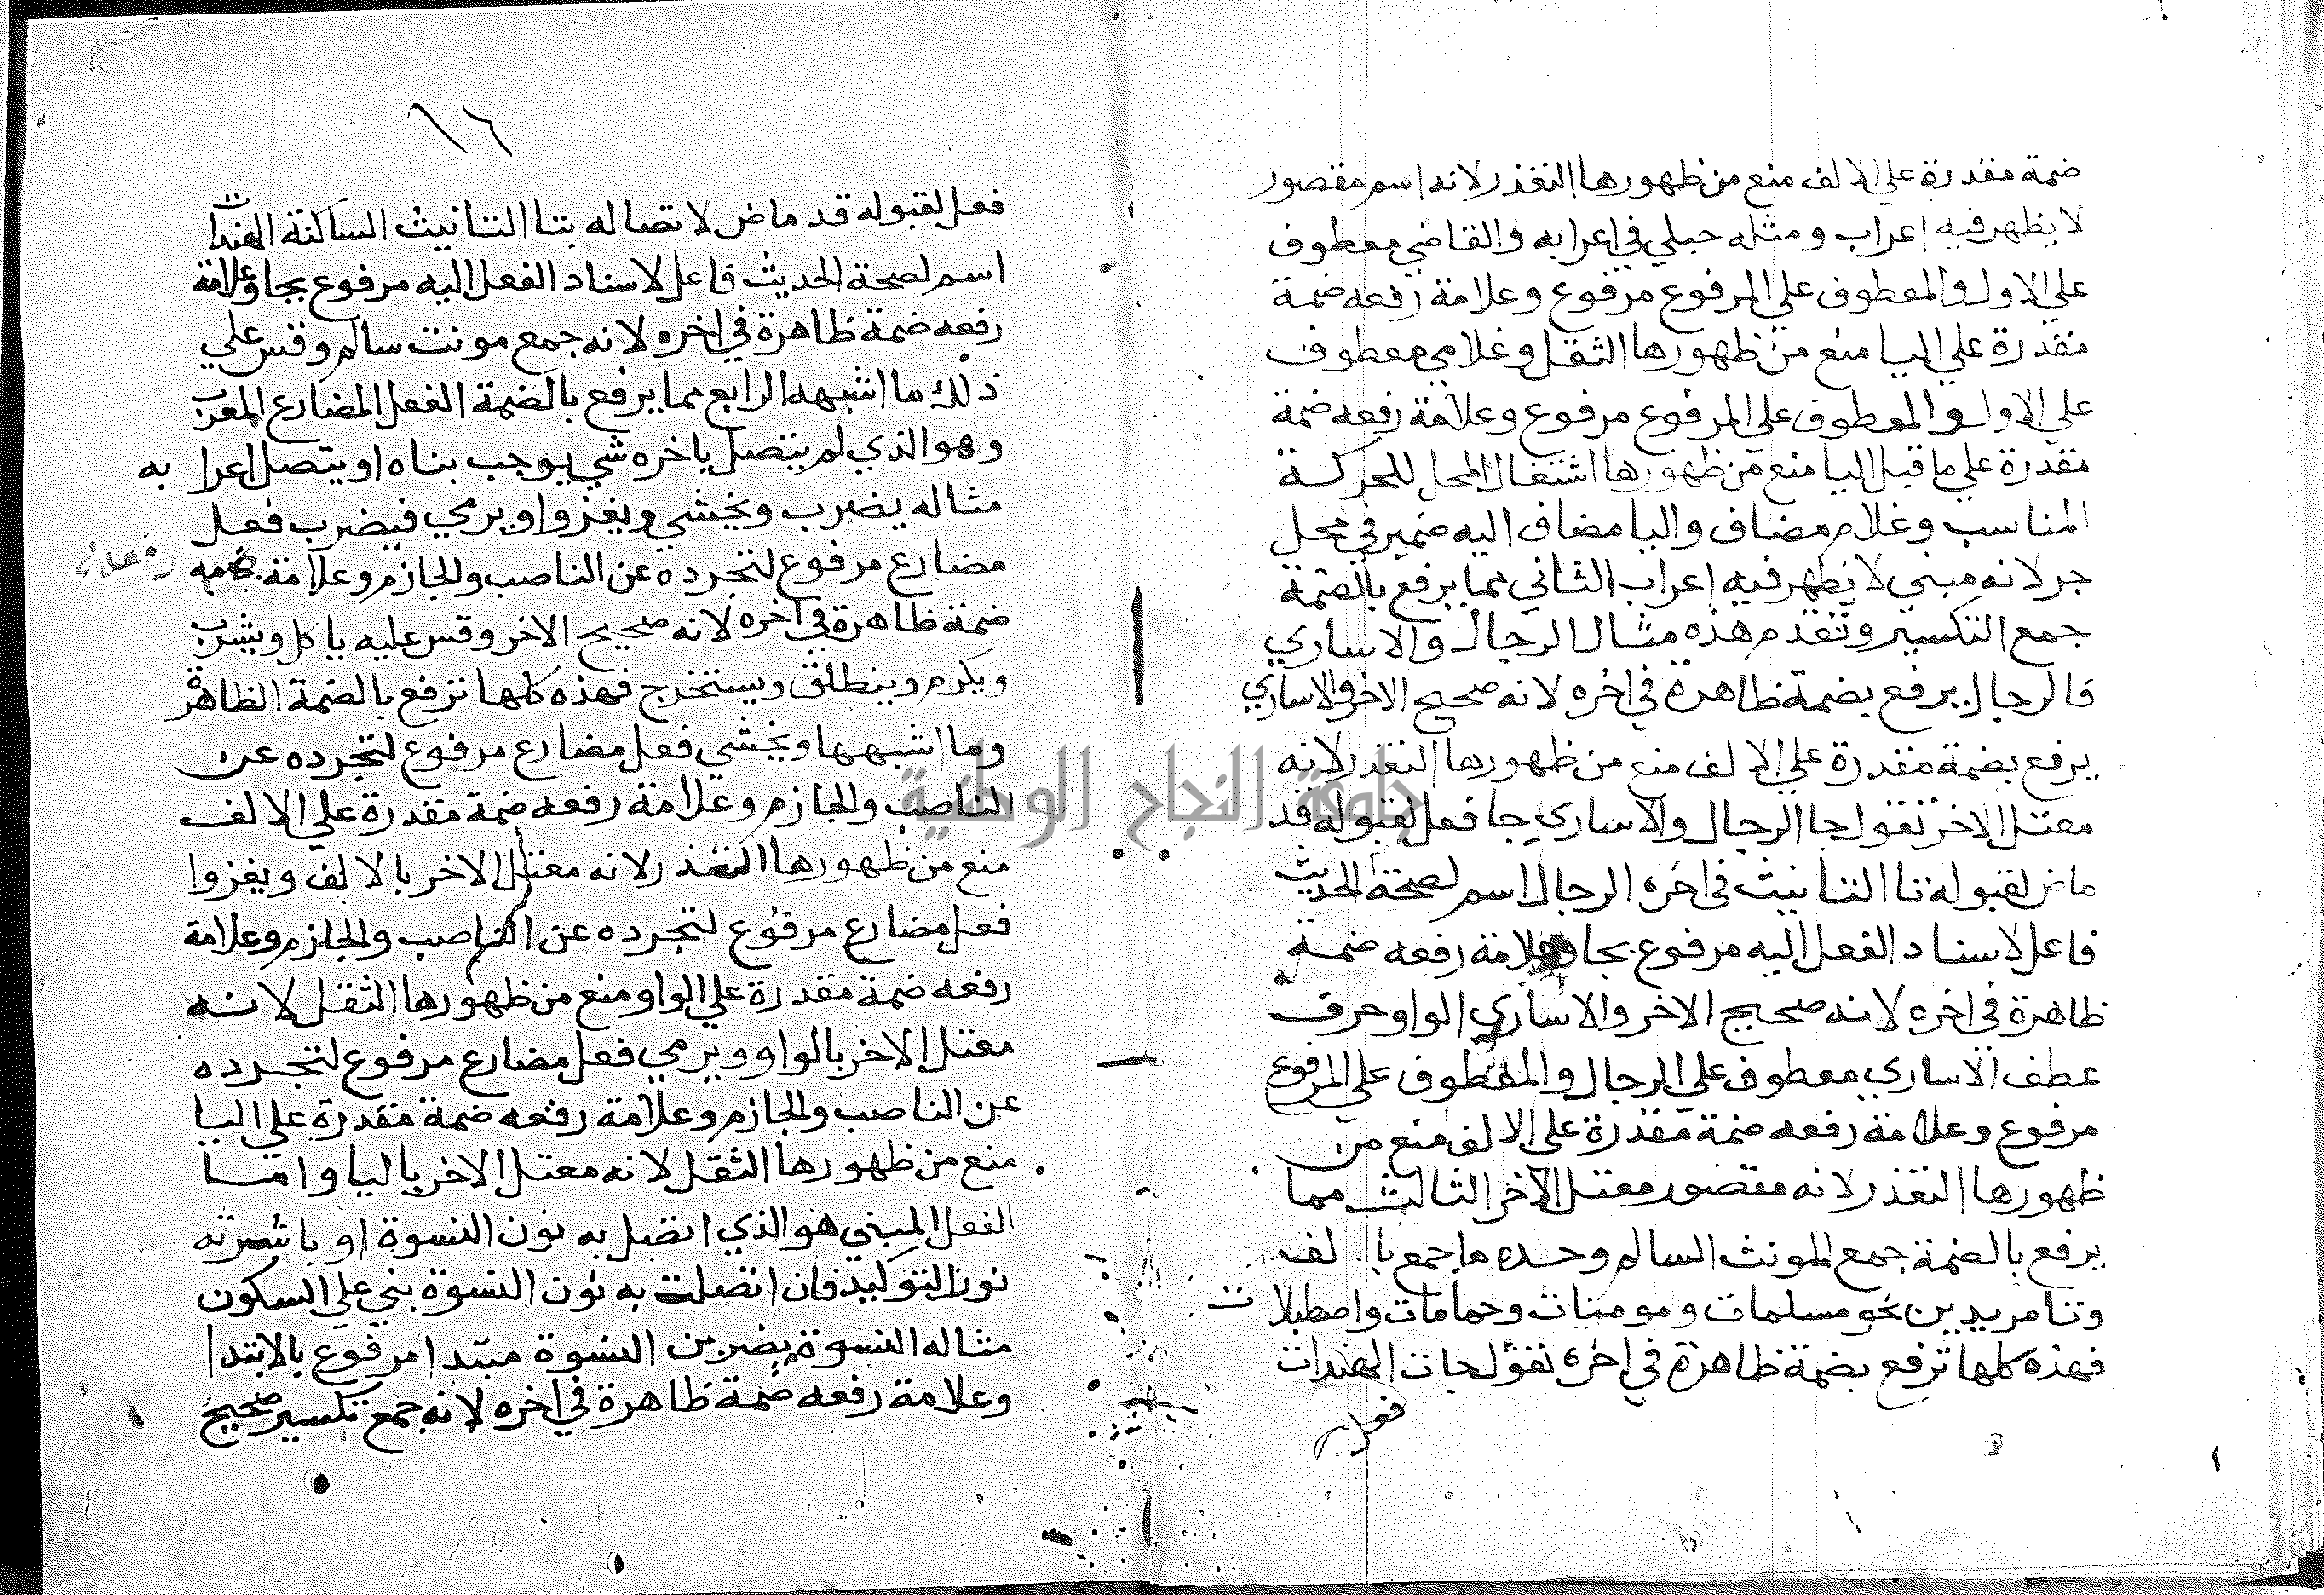 ضمة مقدرة علي الالف منع من ظهورها التعذر لانه اسم مقصور
لا يظهر فيه اعراب ومثله حبلي في اعرابه والقاضي معطوف
علي الاول والمعطوف علي المرفوع مرفوع وعلامة رفعه ضمة
مقدرة علي اليا منع من ظهورها الثقل وغلامي معطوف
علي الاول والمعطوف علي المرفوع مرفوع وعلامة رفعه ضمة
مقدرة علي ما قبل اليا منع من ظهورها اشتغال المحل للحركة
المناسب وغلام مضاف واليا مضاف اليه ضمير في محل
جر لانه مبني لا يظهر فيه اعراب الثاني مما يرفع بالضمة
جمع التكسير وتقدم هذه مثال الرجال والاساري
فالرجال يرفع بضمة ظاهرة في اخره لانه صحيح الاخر والاساري
يرفع بضمة مقدرة علي الالف منع من ظهورها التعذر لانه
معتل الاخر تقول جا الرجال والاساري جا فعل لقبوله قد
ماض لقبوله تا التانيث في اخره الرجال اسم لصحة الحديث
فاعل لاسناد الفعل اليه مرفوع بجا وعلامة رفعه ضمة
ظاهرة في اخره لانه صحيح الاخر والاساري الواو حرف
عطف الاساري معطوف علي الرجال والمعطوف علي المرفوع
مرفوع وعلامة رفعه ضمة مقدرة علي الالف منع من
ظهورها التعذر لانه مقصور معتل الاخر الثالث مما
يرفع بالضمة جمع المونث السالم وحده ما جمع بالف
وتا مريدين نحو مسلمات ومومنات وحمامات واصطبلات
فهذه كلها ترفع بضمة ظاهرة في اخره تقول جات الهندات
فعل
١٦
فعل لقبوله قد ماض لاتصاله بتا التانيث الساكنة الهندات
اسم لصحة الحديث فاعل لاسناد الفعل اليه مرفوع بجا وعلامة
رفعه ضمة ظاهرة في اخره لانه جمع مونت سالم وقس علي
ذلك ما اشبهه الرابع مما يرفع بالضمة الفعل المضارع المعرب
وهو الذي لم يتصل باخره شي يوجب بناه او يتصل اعرابه
مثاله يضرب ويخشي ويغزوا ويرمي فيضرب فعل
مضارع مرفوع لتجرده عن الناصب والجازم وعلامة
ضمة ظاهرة في اخره لانه صحيح الاخر وقس عليه ياكل ويشرب
ويكرم وينطلق ويستخرج فهذه كلها ترفع بالضمة الظاهرة
وما اشبهها ويخشي فعل مضارع مرفوع لتجرده عن
الناصب والجازم وعلامة رفعه ضمة مقدرة علي الالف
منع من ظهورها التعذر لانه معتل الاخر بالالف ويغزوا
فعل مضارع مرفوع لتجرده عن الناصب والجازم وعلامة
رفعه ضمة مقدرة علي الواو منع من ظهورها الثقل لانه
معتل الاخر بالواو ويرمي فعل مضارع مرفوع لتجرده
عن الناصب والجازم وعلامة رفعه ضمة مقدرة علي اليا
منع من ظهورها الثقل لانه معتل الاخر باليا واما
الفعل المبني هو الذي اتصل به نون النسوة او باشرته
نون التوكيد فان اتصلت به نون النسوة بني علي السكون
مثاله النسوة يضربن النسوة مبتدا مرفوع بالابتدا
وعلامة رفعه ضمة ظاهرة في اخره لانه جمع تكسير صحيح
جامعة النجاح الوطنية